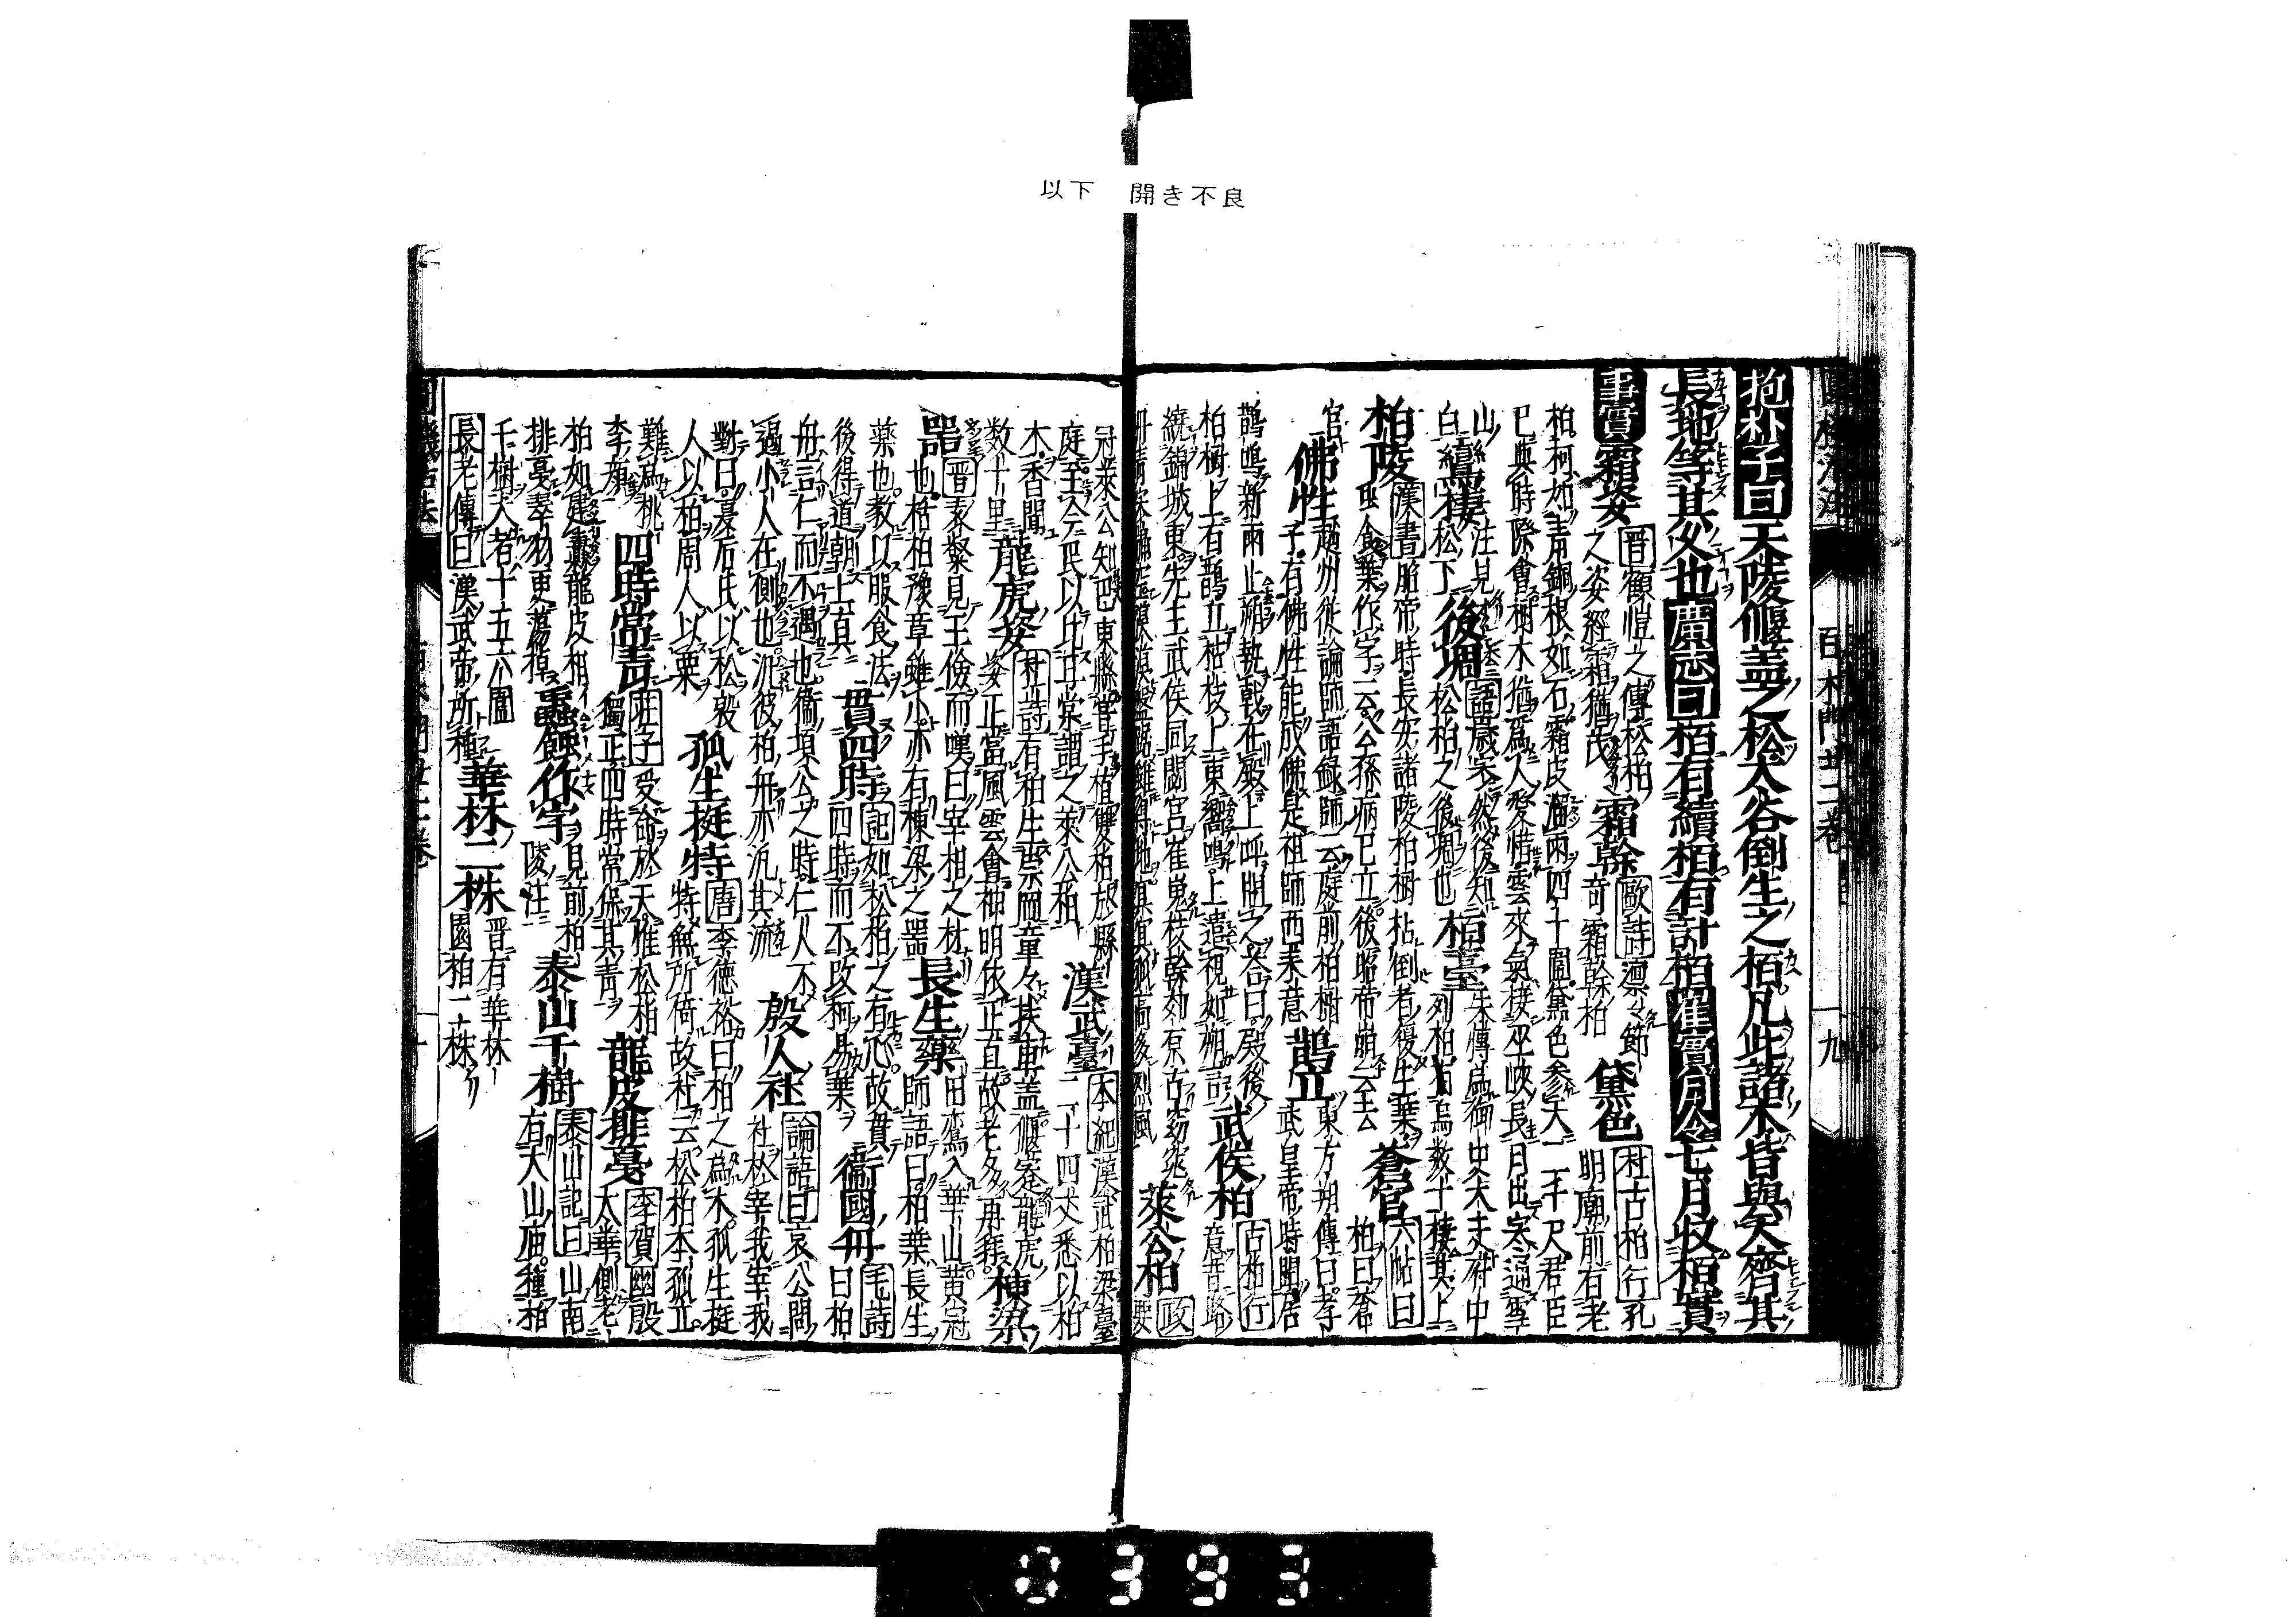 以下　開き不良
百木門廿二巻
九
抱朴子曰天陵偃盖之松大谷倒生之栢凡此諸木皆與天齊其
長地等其久也廣志曰栢有續栢有計栢崔寔月令七月收栢實
事實霜姿晋顧愷之傳松柏之姿經霜猶茂霜幹歐詩凛々節奇霜幹柏黛色杜古柏行孔明廟前有老
柏柯如青銅根如石霜皮溜雨四十圍黛色參天二千尺君臣
已與時際會樹木猶爲人愛惜雲來氣接巫峽長月出寒通雪
山白鸞棲注見松下後凋語歳寒然後知松柏之後凋也栢臺朱博爲御史大夫府中列柏柏烏数千棲其上
柏陵漢書昭帝時長安諸陵柏樹枯倒者復生葉虫食葉作字云公孫病已立後昭帝崩云云蒼官六帖曰柏曰蒼
官佛性趙州從論師語録師云庭前柏樹子有佛性能成佛是祖師西来意鵲立東方朔傳曰孝武皇帝時閑居
鵲鳴新雨止朔執戟在殿上呼問之答曰殿後
柏樹上有鵲立枯枝上東嚮鳴上遣視如朔言武侯柏古柏行意昔路
繞錦城東先主武侯同閟宮崔嵬枝幹郊原古窈窕萊公柏政要
冠萊公知巴東縣嘗手植雙柏於縣
庭至今民以比甘棠謂之萊公柏漢武臺本紀漢武柏梁臺二十四丈悉以柏
木香聞数十里龍虎姿杜詩有柏生崇岡童々狀車盖偃蹇龍虎姿正當風雲會神明依正直故老多再拜棟梁
器晋袁粲見王儉而嘆曰宰相之材也栝柏豫章雖小亦有棟梁之器長生藥田鸞入華山黄冠師語曰柏葉長生
藥也教以服食法
後得道朝上真貫四時記如松柏之有心故貫四時而不改柯易葉衞國舟毛詩曰柏
舟言仁而不遇也衞頃公之時仁人不
遇小人在側也汎彼柏舟亦汎其流殷人社論語曰哀公問社於宰我宰我
對曰夏后氏以松殷
人以柏周人以栗孤生挺特唐李德裕曰柏之為木孤生挺特無所倚故杜云松柏本孤立
難為桃李顔四時常青莊子受命於天惟松柏獨正四時常保其青龍皮排戞李賀幽殷大華側老
柏如建纛龍皮相
排戞翠羽更蕩掉蟲蝕作字見前柏陵注泰山千樹泰山記曰山南有大山廟種柏
千樹大者十五六圍
長老傳曰漢武帝所種華林二株晋有華林園柏二株
0393